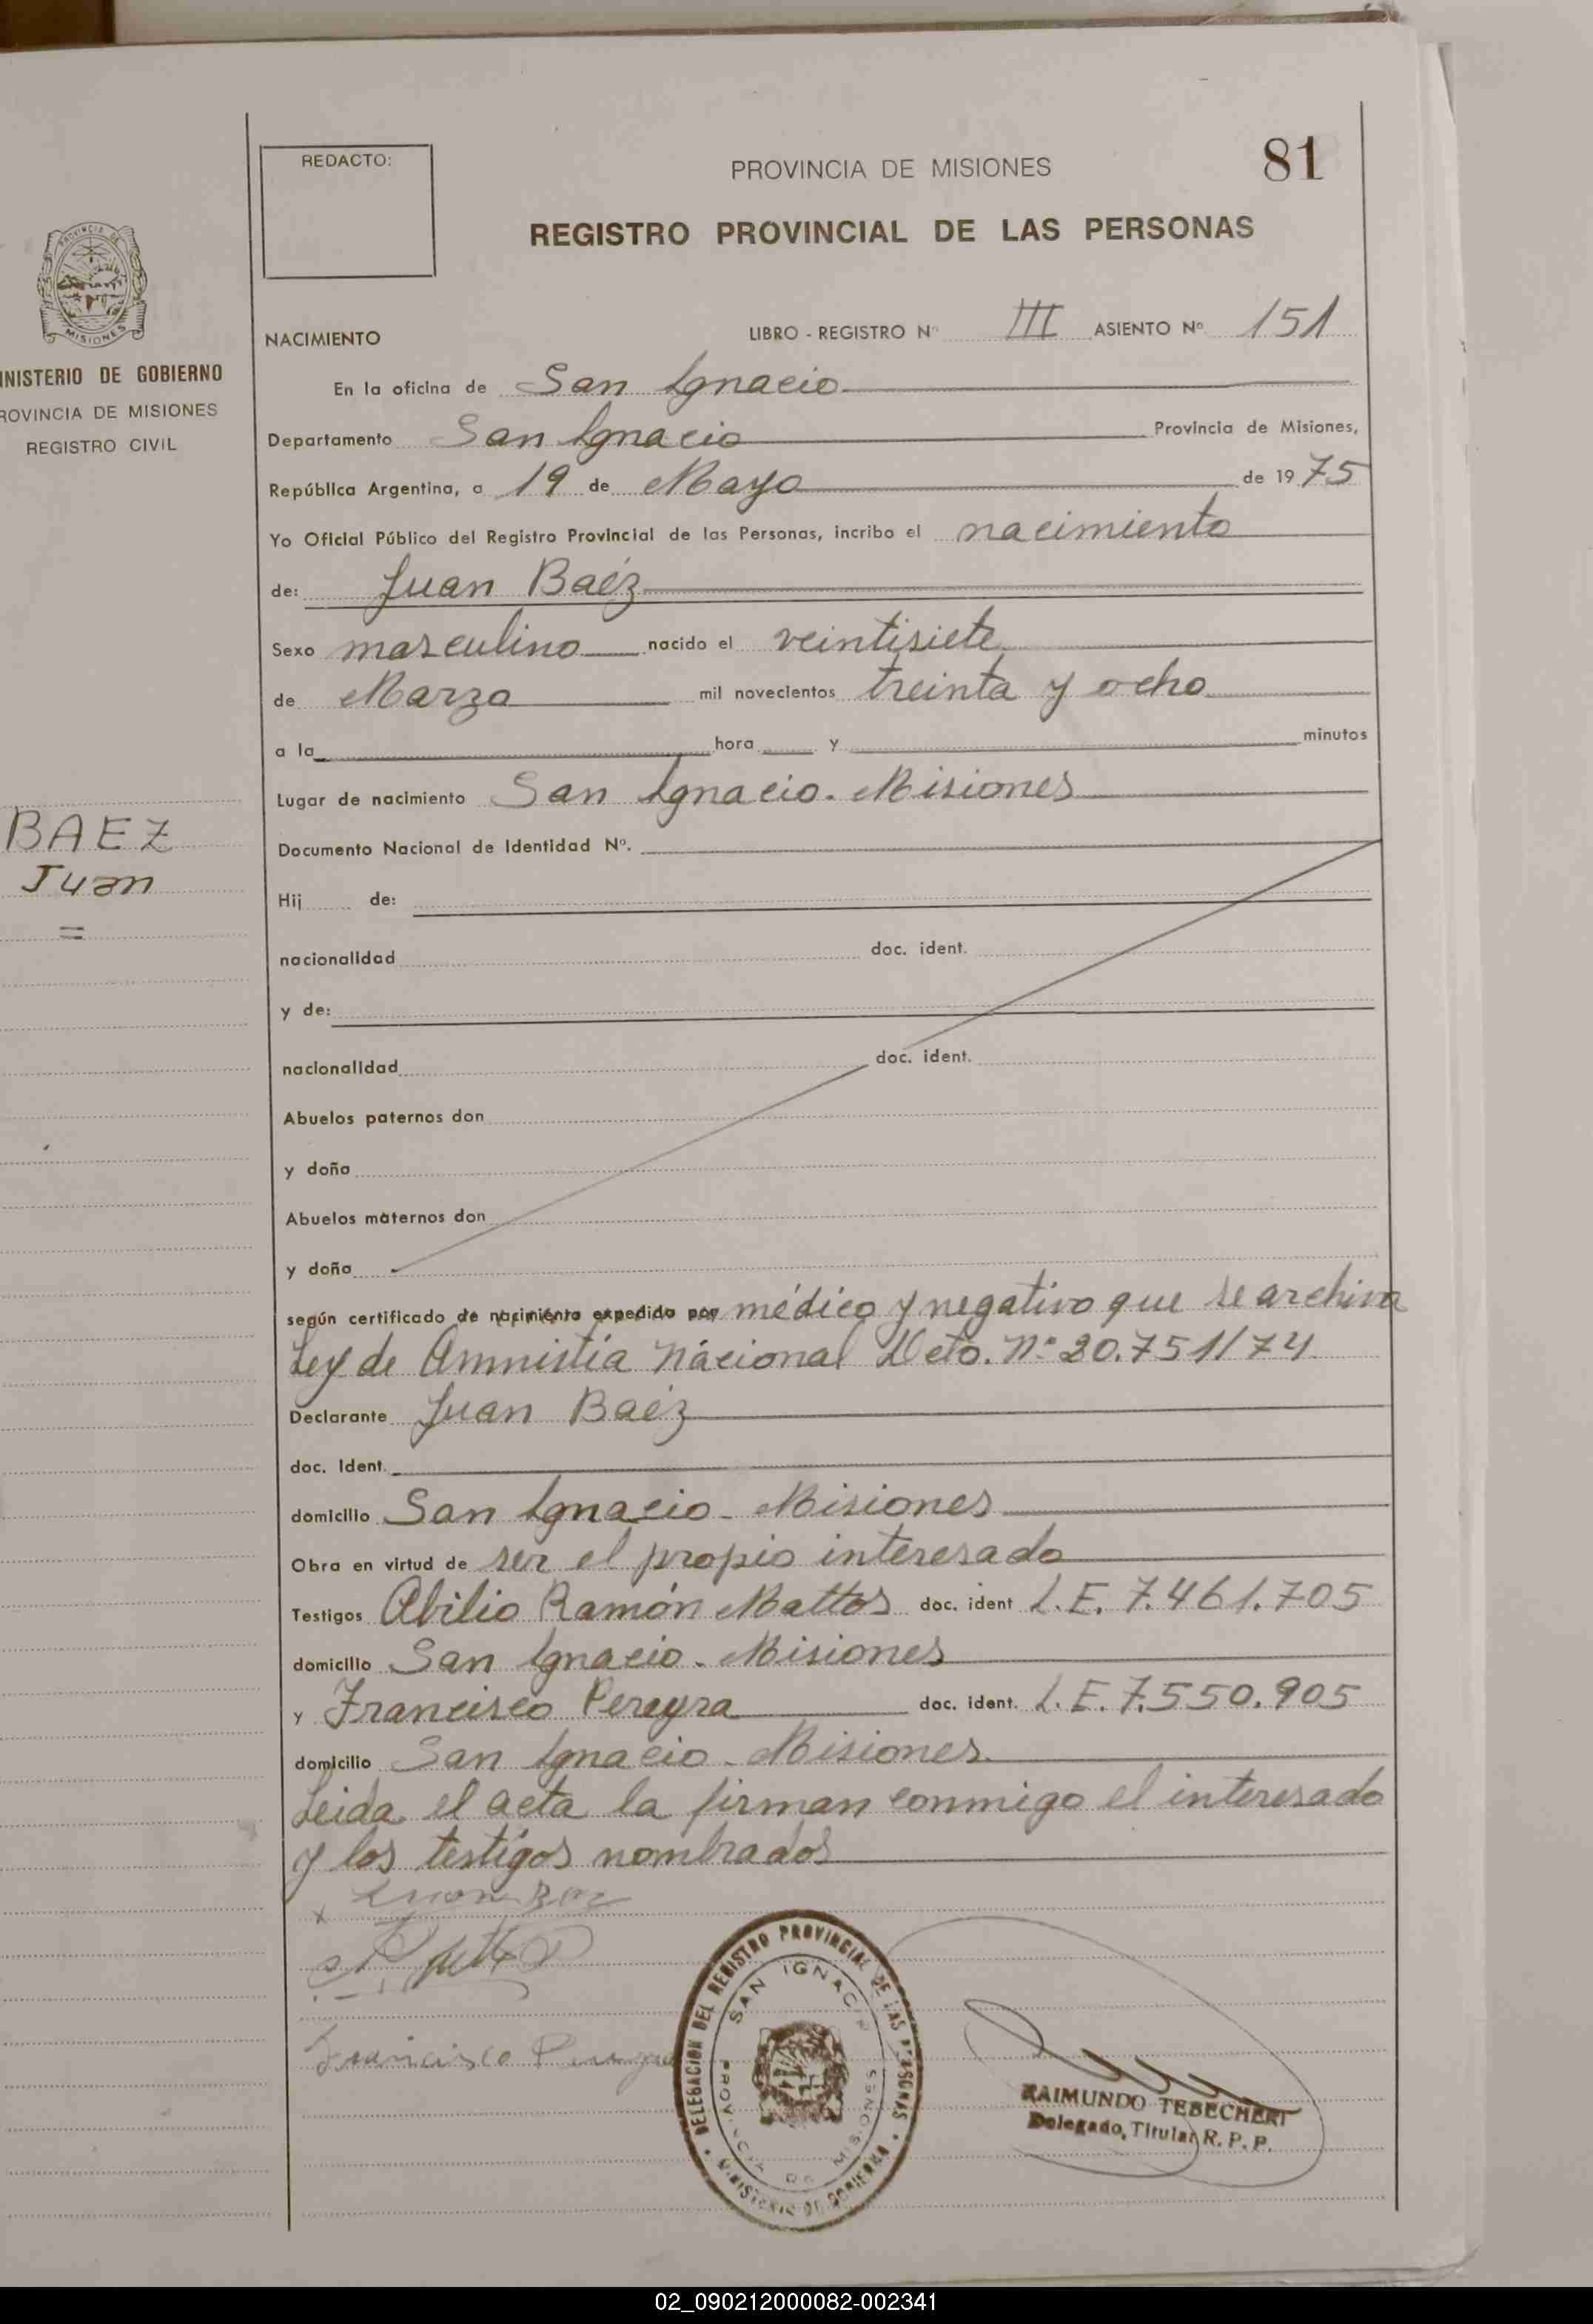 REDACTO:
PROVINCIA DE MISIONES
81
REGISTRO PROVINCIAL DE LAS PERSONAS
PROVINCIA DE
MISIONES
INISTERIO DE GOBIERNO
ROVINCIA DE MISIONES
REGISTRO CIVIL
BAEZ
Juan
=
NACIMIENTO LIBRO - REGISTRO Nº III ASIENTO Nº 151
En la oficina de San Ignacio
Departamento San Ignacio Provincia de Misiones,
República Argentina, a 19 de Mayo de 1975
Yo Oficial Público del Registro Provincial de las Personas, incribo el nacimiento
de: Juan Baéz
Sexo masculino nacido el veintisiete
de Marzo mil novecientos treinta y ocho
a la hora y minutos
Lugar de nacimiento San Ignacio. Misiones
Documento Nacional de Identidad Nº.
Hij de:
nacionalidad doc. ident.
y de:
nacionalidad doc. ident.
Abuelos paternos don
y doña
Abuelos maternos don
y doña
según certificado de nacimiento expedido por médico y negativo que se archiva
Ley de Amnistía Nácional Dcto. Nº 20.751/74
Declarante Juan Baéz
doc. Ident.
domicilio San Ignacio - Misiones
Obra en virtud de ser el propio interesado
Testigos Abilio Ramón Mattos doc. ident L.E. 7.461.705
domicilio San Ignacio - Misiones
y Francisco Pereyra doc. ident. L.E. 7.550.905
domicilio San Ignacio - Misiones
Leida el acta la firman conmigo el interesado
y los testigos nombrados
x
Francisco
DELEGACION DEL REGISTRO PROVINCIAL DE LAS PERSONAS
SAN IGNACIO
PROVINCIA DE MISIONES
MINISTERIO DE GOBIERNO
RAIMUNDO TEBECHERI
Delegado, Titular R. P. P.
02_090212000082-002341